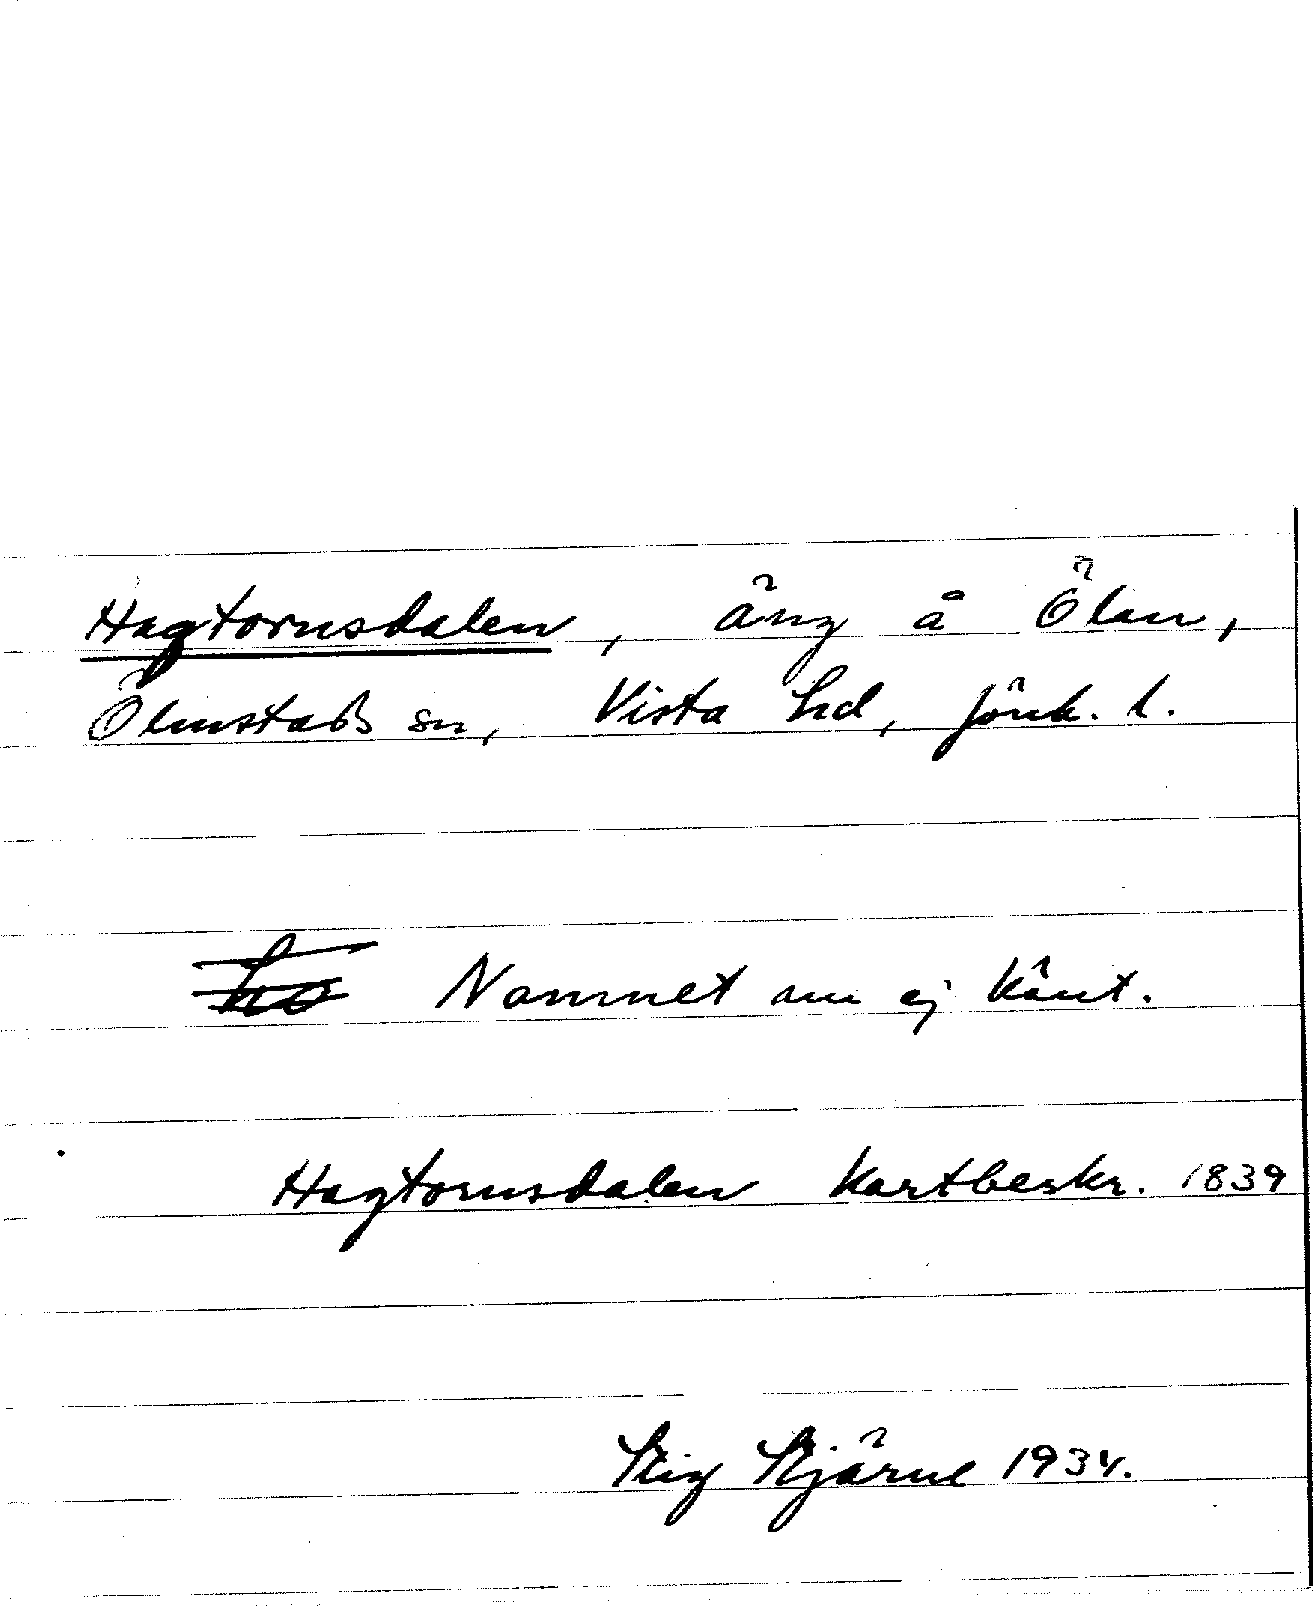 Hagtornsdalen, äng å Ölan,
Ölmstads sn, Vista hd, Jönk. l.
Namnet nu ej känt.
Hagtornsdalen Kartbeskr. 1839
Stig Stjärne 1934.